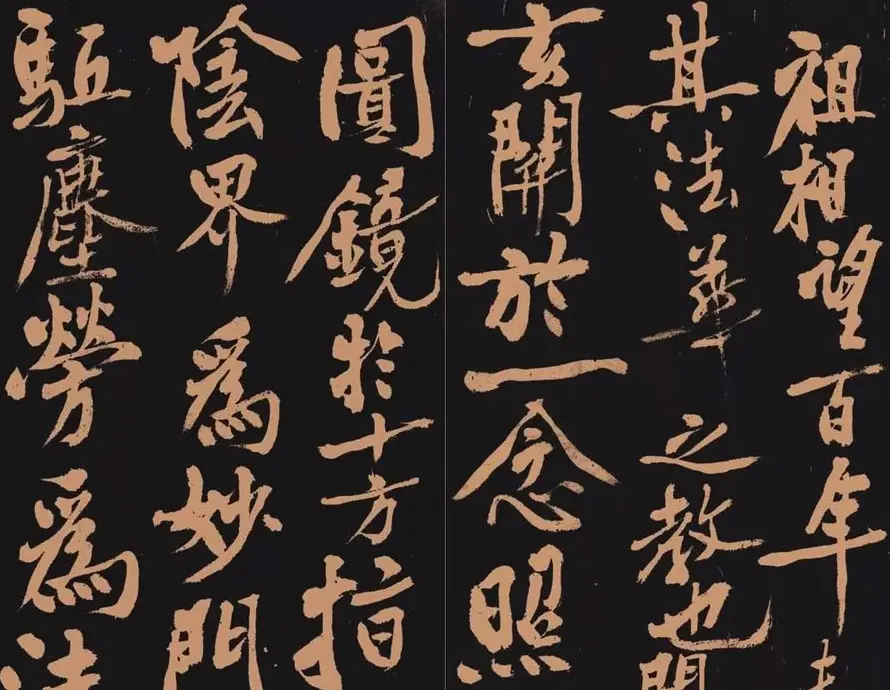 祖相望百年
其法華之教也
玄關於一念照
圓鏡於十方指
陰界爲妙門
駈塵勞爲法